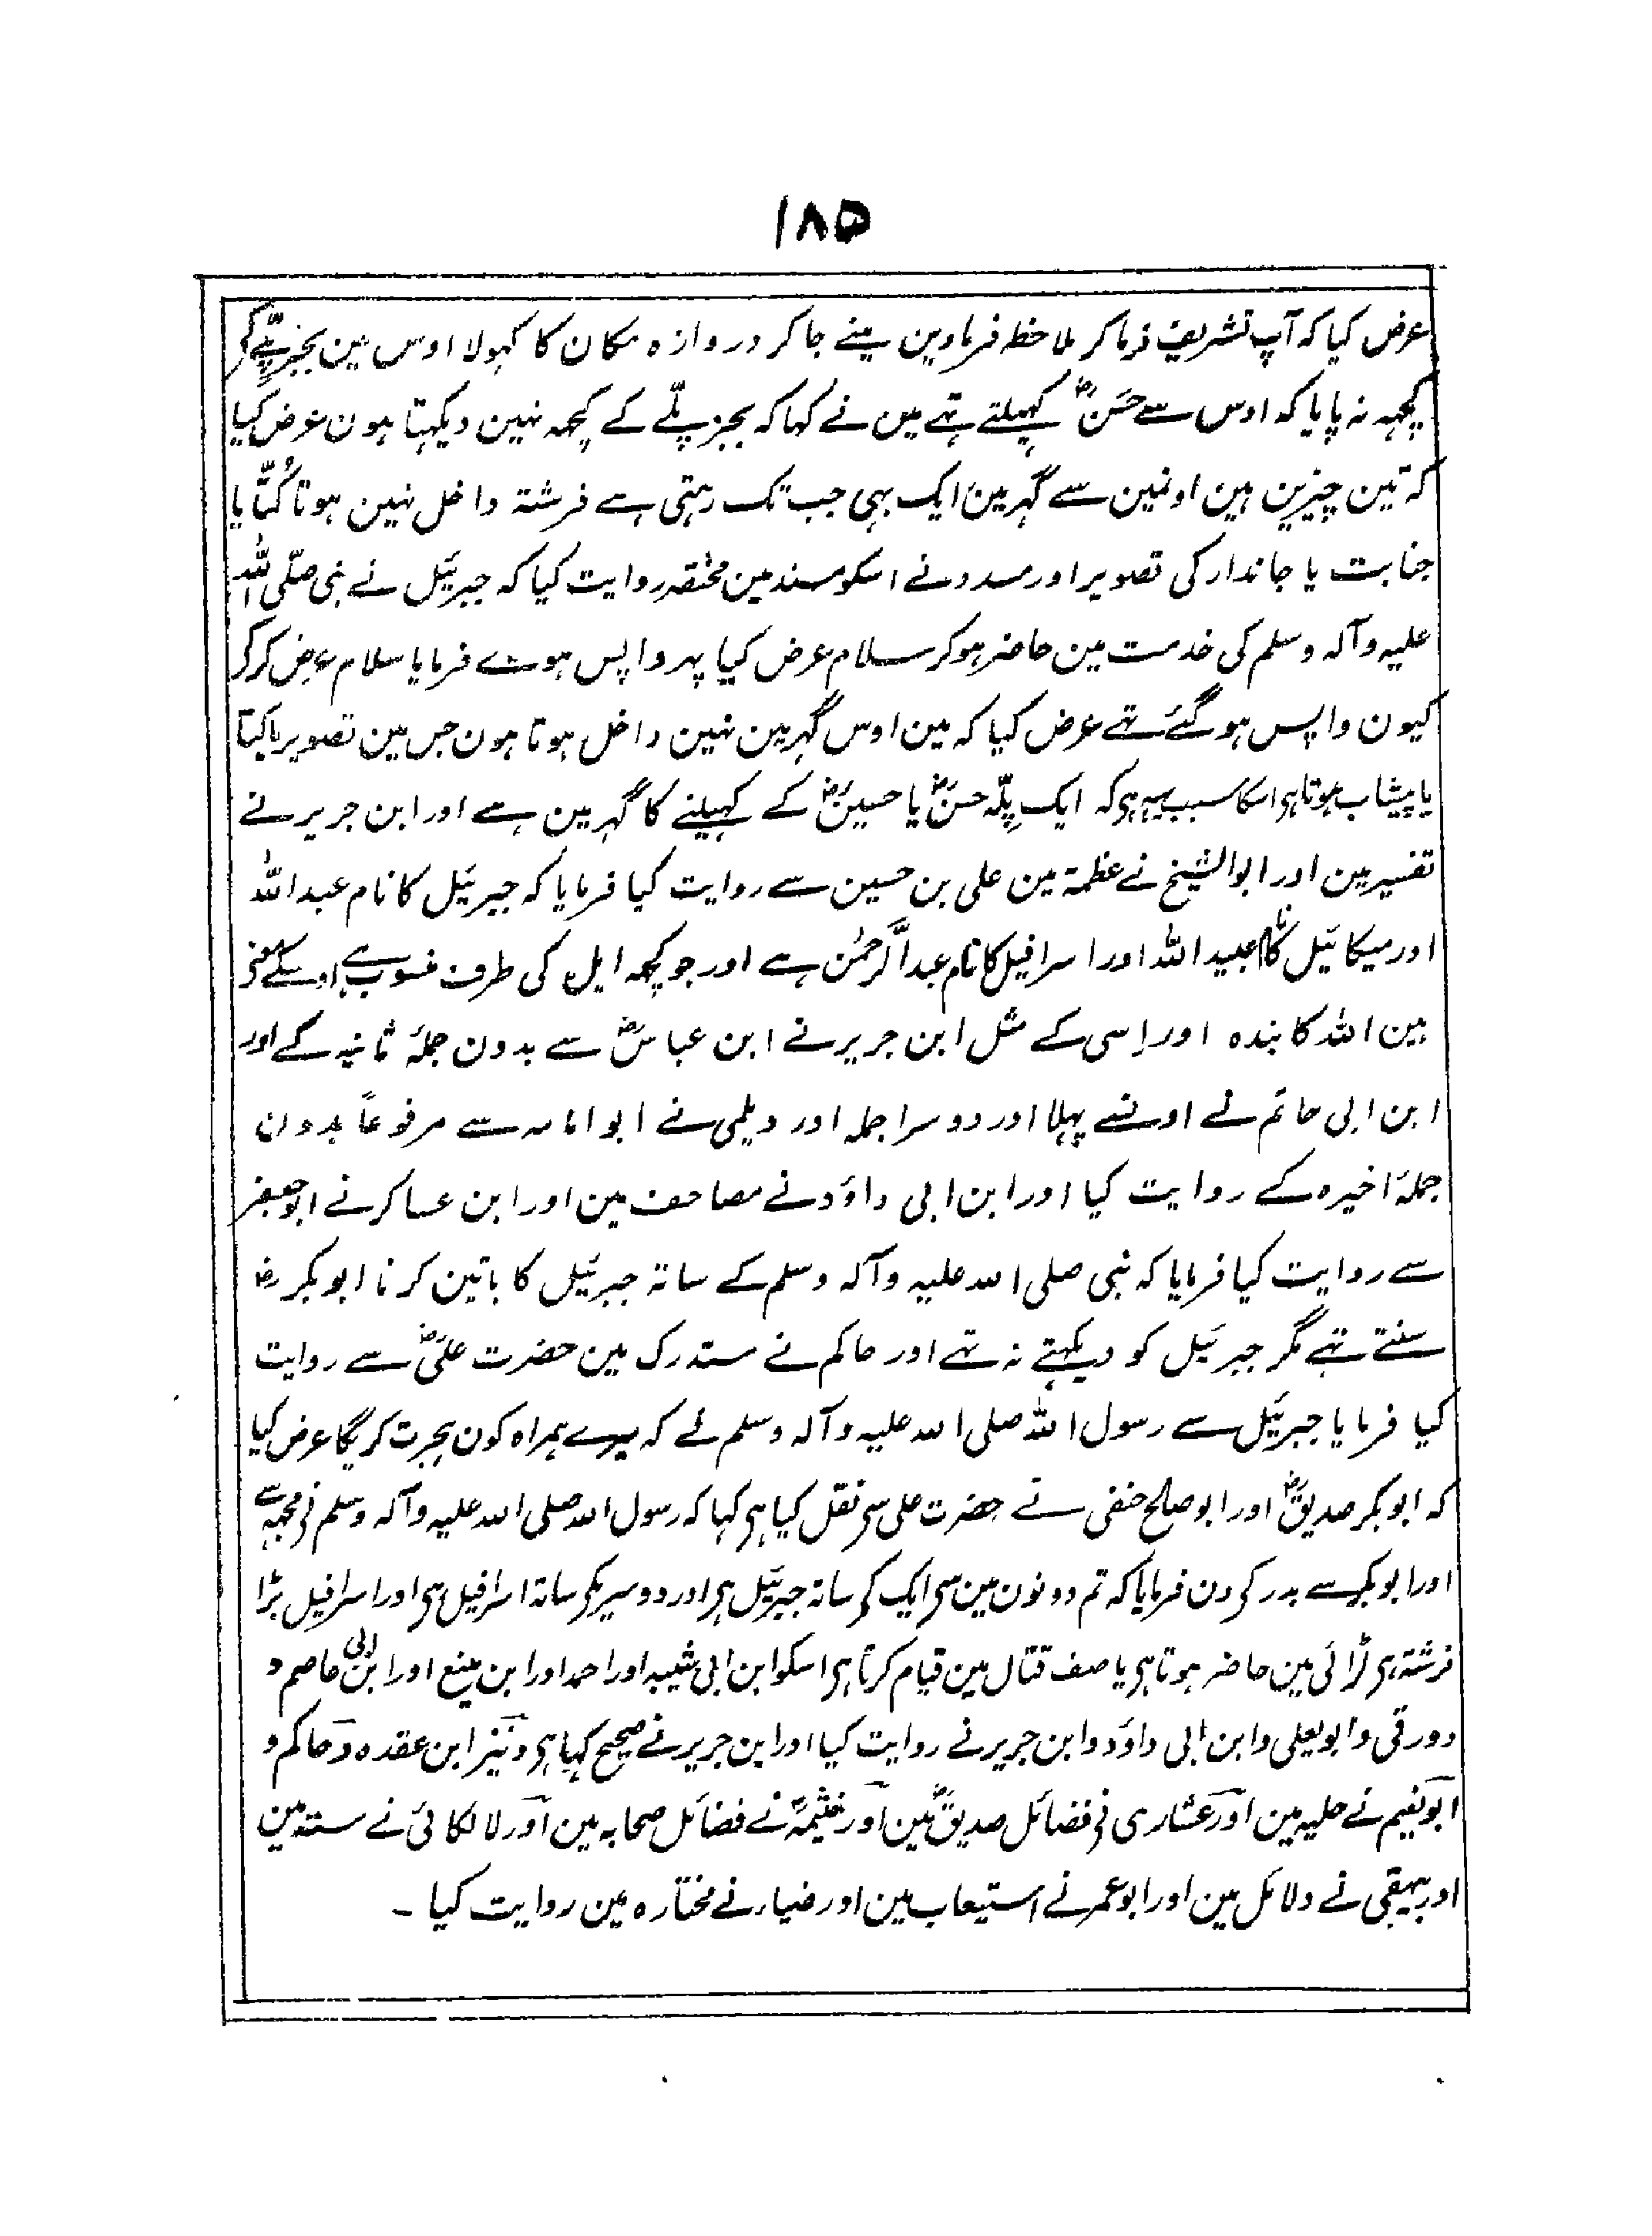 ۱۸۵
عرض کیا کہ آپ تشریف فرما کر ملاحظہ فرماوین مینے جا کر دروازہ مکان کا کہولا اوس مین بجز پلّے کے
کچہہ نہ پایا کہ اوس سے حسنؓ کہیلتے تہے میں نے کہا کہ بجز پلّے کے کچہہ نہین دیکہتا ہون عرض کیا
کہ تین چیزین ہین اونمین سے گہر مین ایک بہی جب تک رہتی ہے فرشتہ داخل نہین ہوتا کُتّا یا
جنابت یا جاندار کی تصویر اور مسدد نے اسکو مسند مین مختصر روایت کیا کہ جبرئیل نے نبی صلّی اللہ
علیہ وآلہ وسلم کی خدمت مین حاضر ہوکر سلام عرض کیا پہر واپس ہوے فرمایا سلام عرض کر کر
کیون واپس ہو گئے تہے عرض کیا کہ مین اوس گہر مین نہین داخل ہوتا ہون جس مین تصویر یا کتّا
یا پیشاب ہوتا ہی اسکا سبب یہہ ہی کہ ایک پلّہ حسنؓ یا حسینؓ کے کہیلنے کا گہر مین ہے اور ابن جریر نے
تفسیر مین اور ابوالشیخ نے عظمۃ مین علی بن حسین سے روایت کیا فرمایا کہ جبرئیل کا نام عبداللہ
اور میکائیل کا نام عبیداللہ اور اسرافیل کا نام عبدالرحمٰن ہے اور جو کچہہ ایل کی طرف منسوب ہے اوسکے معنی
ہین اللہ کا بندہ اور اِسی کے مثل ابن جریر نے ابن عباسؓ سے بدون جملۂ ثانیہ کے اور
ابن ابی حاتم نے اونسے پہلا اور دوسرا جملہ اور دیلمی نے ابوامامہ سے مرفوعاً بدون
جملۂ اخیرہ کے روایت کیا اور ابن ابی داؤد نے مصاحف مین اور ابن عساکر نے ابوجعفر
سے روایت کیا فرمایا کہ نبی صلی اللہ علیہ وآلہ وسلم کے ساتہ جبرئیل کا باتین کرنا ابوبکر رضؓ
سنتے تہے مگر جبرئیل کو دیکہتے نہ تہے اور حاکم نے مستدرک مین حضرت علیؓ سے روایت
کیا فرمایا جبرئیل سے رسول اللہ صلی اللہ علیہ وآلہ وسلم نے کہ میرے ہمراہ کون ہجرت کریگا عرض کیا
کہ ابوبکر صدیقؓ اور ابوصالح حنفی نے حضرت علی سی نقل کیا ہی کہا کہ رسول اللہ صلی اللہ علیہ وآلہ وسلم نی مجہہ سے
اور ابوبکر سے بدر کی دن فرمایا کہ تم دونون مین سی ایک کی ساتہ جبرئیل ہی اور دوسریکی ساتہ اسرافیل ہی اور اسرافیل بڑا
فرشتہ ہی لڑائی مین حاضر ہوتا ہی یا صف قتال مین قیام کرتا ہی اسکو ابن ابی شیبہ اور احمد اور ابن منیع اور ابن ابی عاصم و
دورقی وابویعلی وابن ابی داؤد وابن جریر نے روایت کیا اور ابن جریر نے صحیح کہا ہی ونیز ابن عقدہ وحاکم و
ابونعیم نے حلیہ مین اور عشاری نی فضائل صدیقؓ مین اور خیثمہ نے فضائل صحابہ مین اور لالکائی نے سنتہ مین
اور بیہقی نے دلائل مین اور ابوعمر نے استیعاب مین اور ضیاء نے مختارہ مین روایت کیا ۔